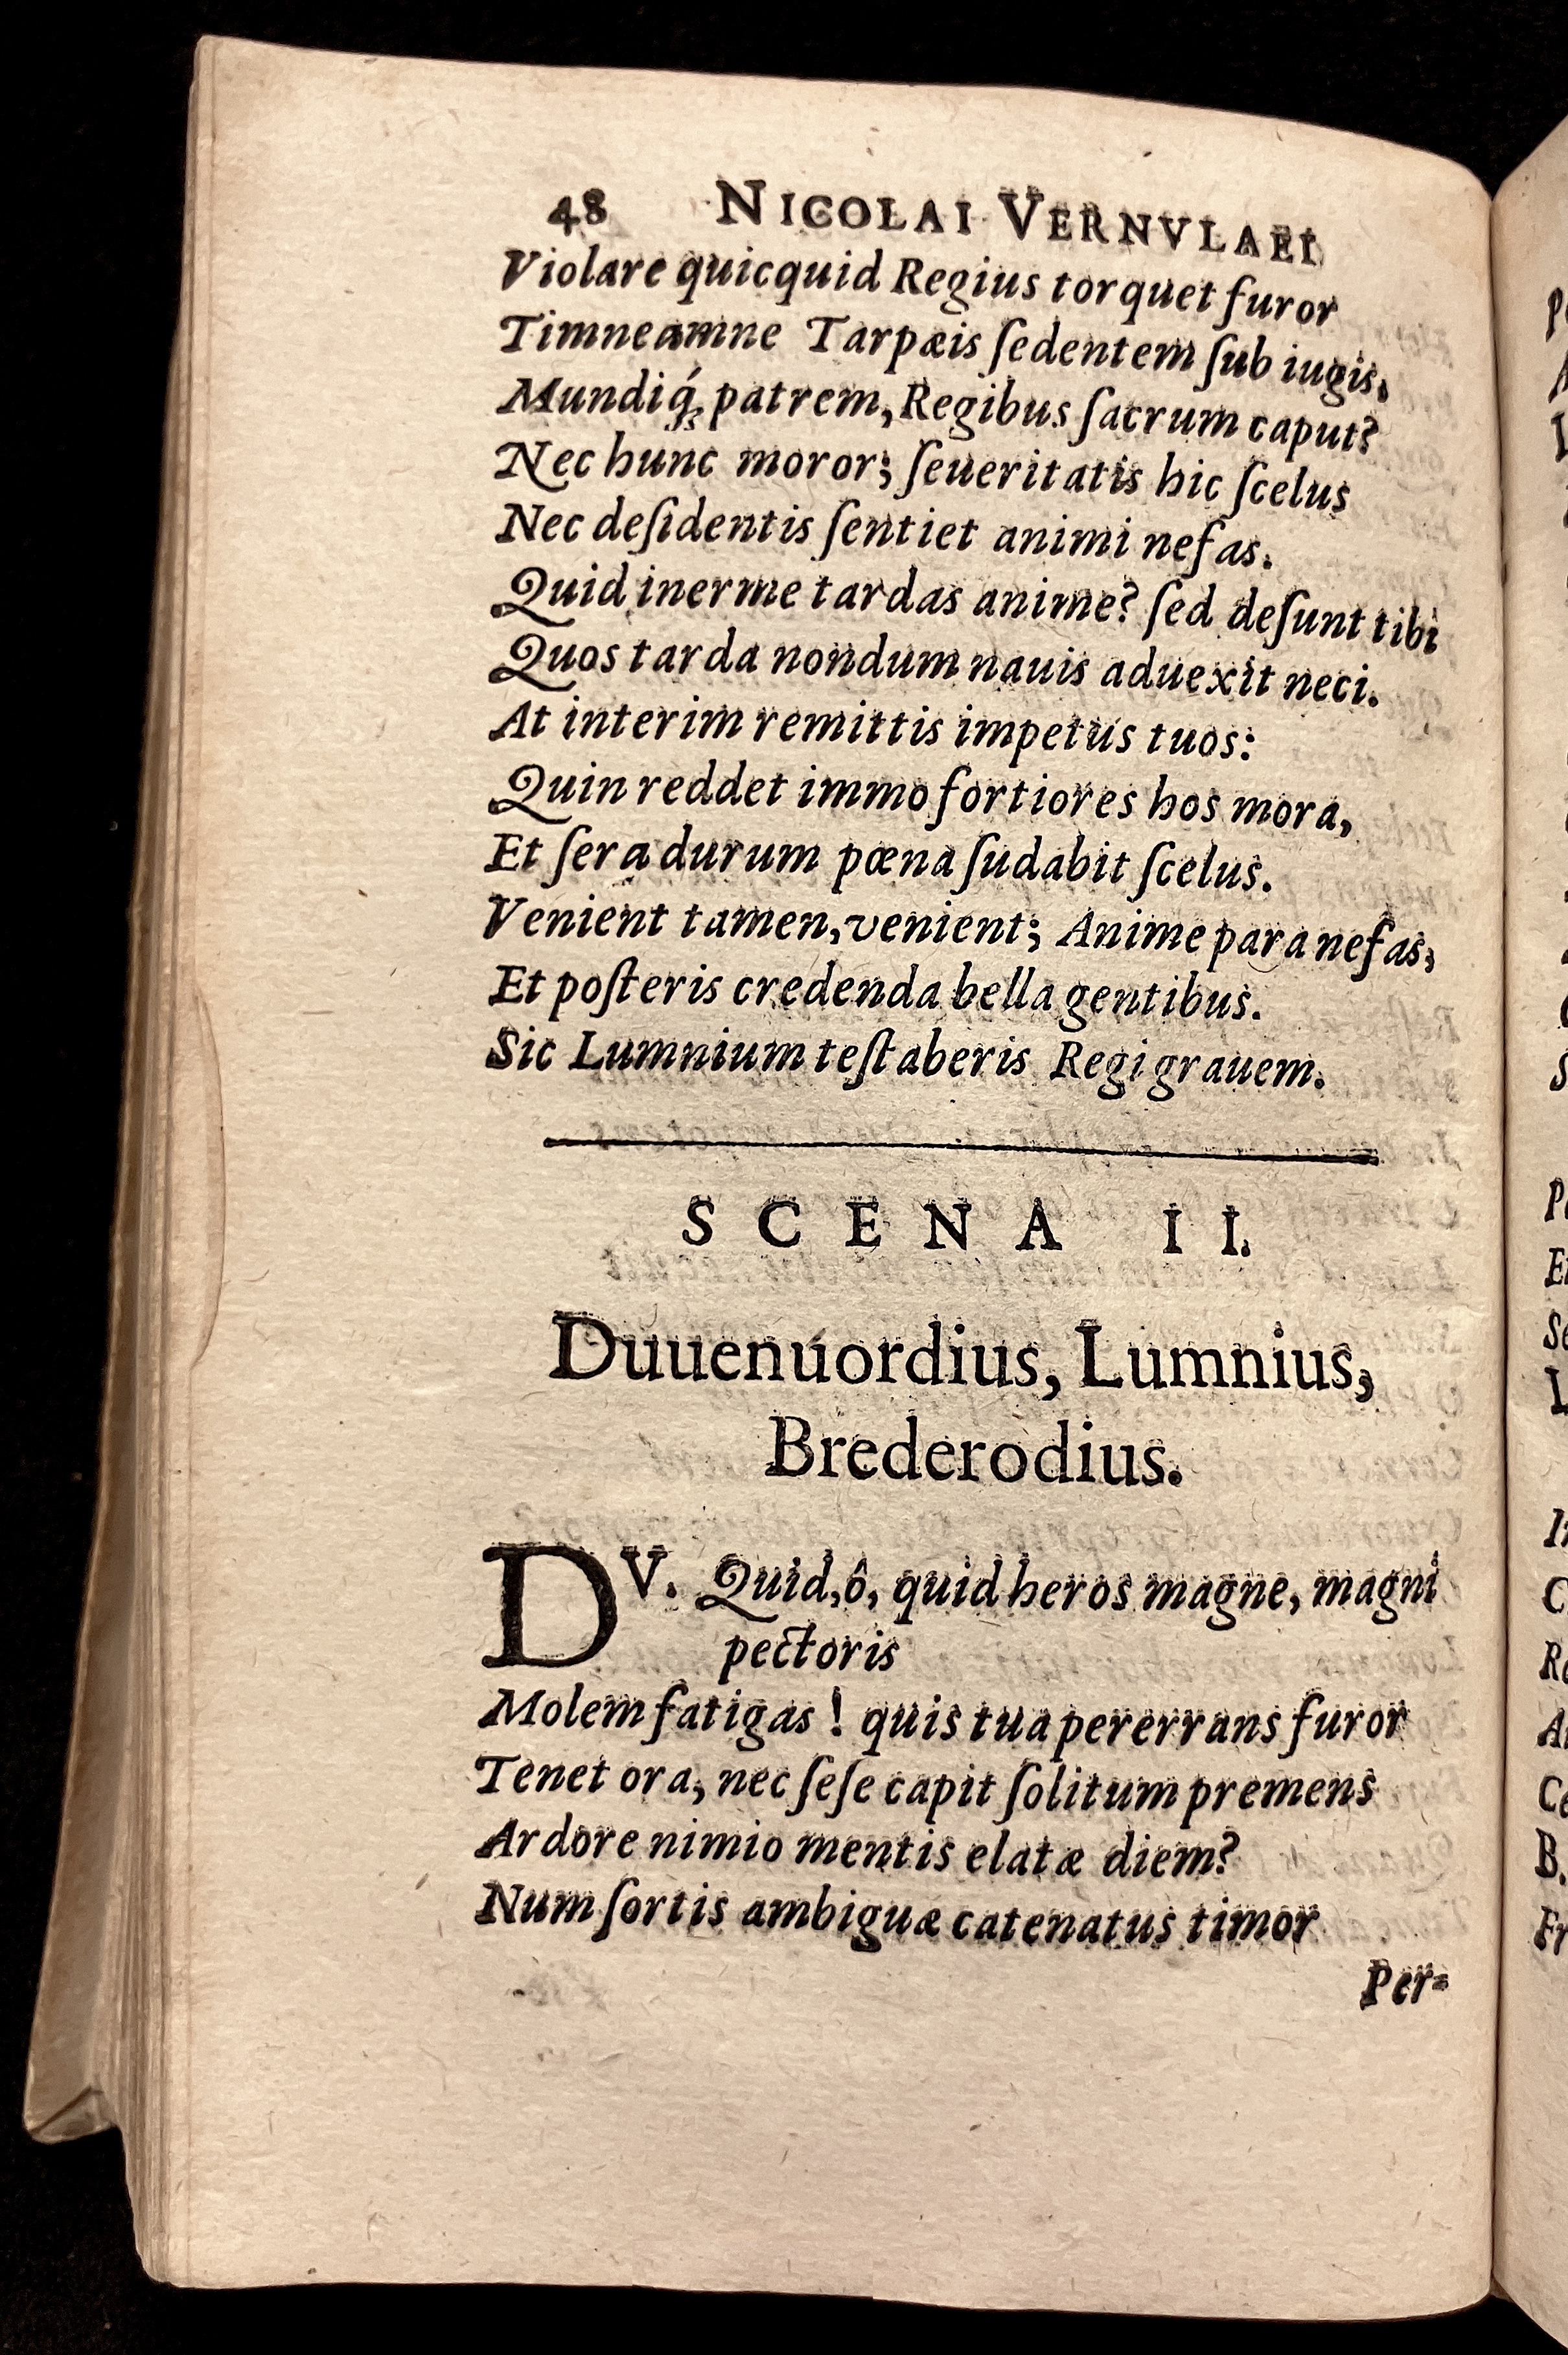 48 NICOLAI VERNVLAEI
Violare quicquid Regius torquet furor
Timneamne Tarpæis ſedentem ſub iugis,
Mundiq́; patrem, Regibus ſacrum caput?
Nec hunc moror; ſeueritatis hic ſcelus
Nec deſidentis ſentiet animi nefas.
Quid inerme tardas anime? ſed deſunt tibi
Quos tarda nondum nauis aduexit neci.
At interim remittis impetus tuos:
Quin reddet immo fortiores hos mora,
Et ſera durum pœna ſudabit ſcelus.
Venient tamen, venient; Anime para nefas,
Et poſteris credenda bella gentibus.
Sic Lumnium teſtaberis Regi grauem.
SCENA II.
Duuenuordius, Lumnius,
Brederodius.
DV. Quid, ô, quid heros magne, magni
pectoris
Molem fatigas! quis tua pererrans furor
Tenet ora, nec ſeſe capit ſolitum premens
Ardore nimio mentis elatæ diem?
Num ſortis ambiguæ catenatus timor
Per-